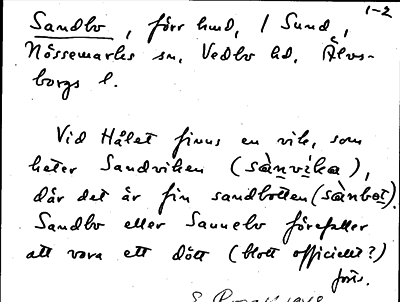 1-2
Sandbo, förr hmd, i Sund,
Nössemarks sn, Vedbo hd, Älvs-
borgs l.
Vid Hålet finns en vik, som
heter Sandviken (sànvíka),
där det är fin sandbotten (sànbot).
Sandbo eller Sannebo förefaller
att vara ett dött (blott officiellt?)
forts.